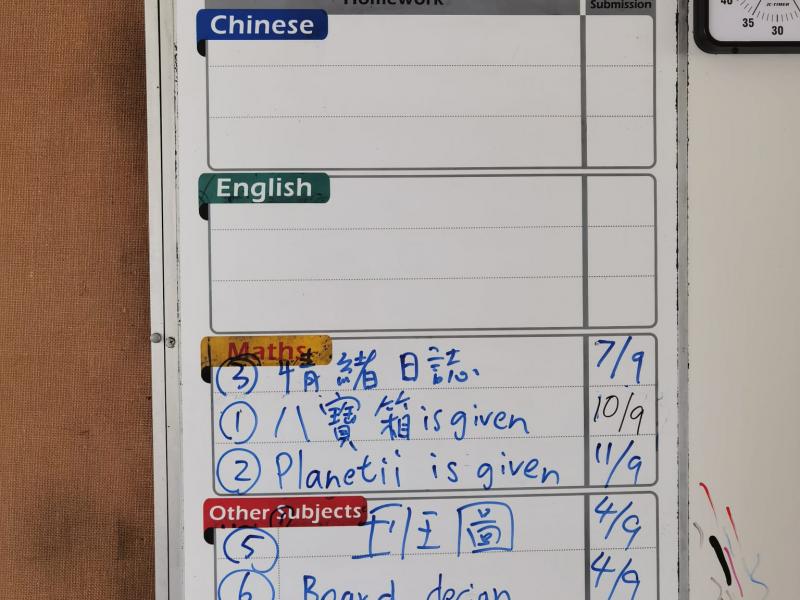 Homework
Submission
Chinese
English
Maths
③ 情緒日誌 7/9
① 八寶箱 is given 10/9
② Planetii is given 11/9
Other Subjects
⑤ 圖 4/9
⑥ Board design 4/9
40
35
30
JC-TIMER